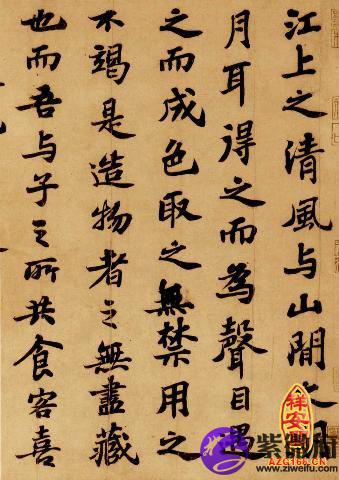 江上之清風与山間之明
月耳得之而為聲目遇
之而成色取之無禁用之
不竭是造物者之無盡藏
也而吾与子之所共食客喜
祥安阁
AZG168.CN
紫微府
www.ziweifu.com